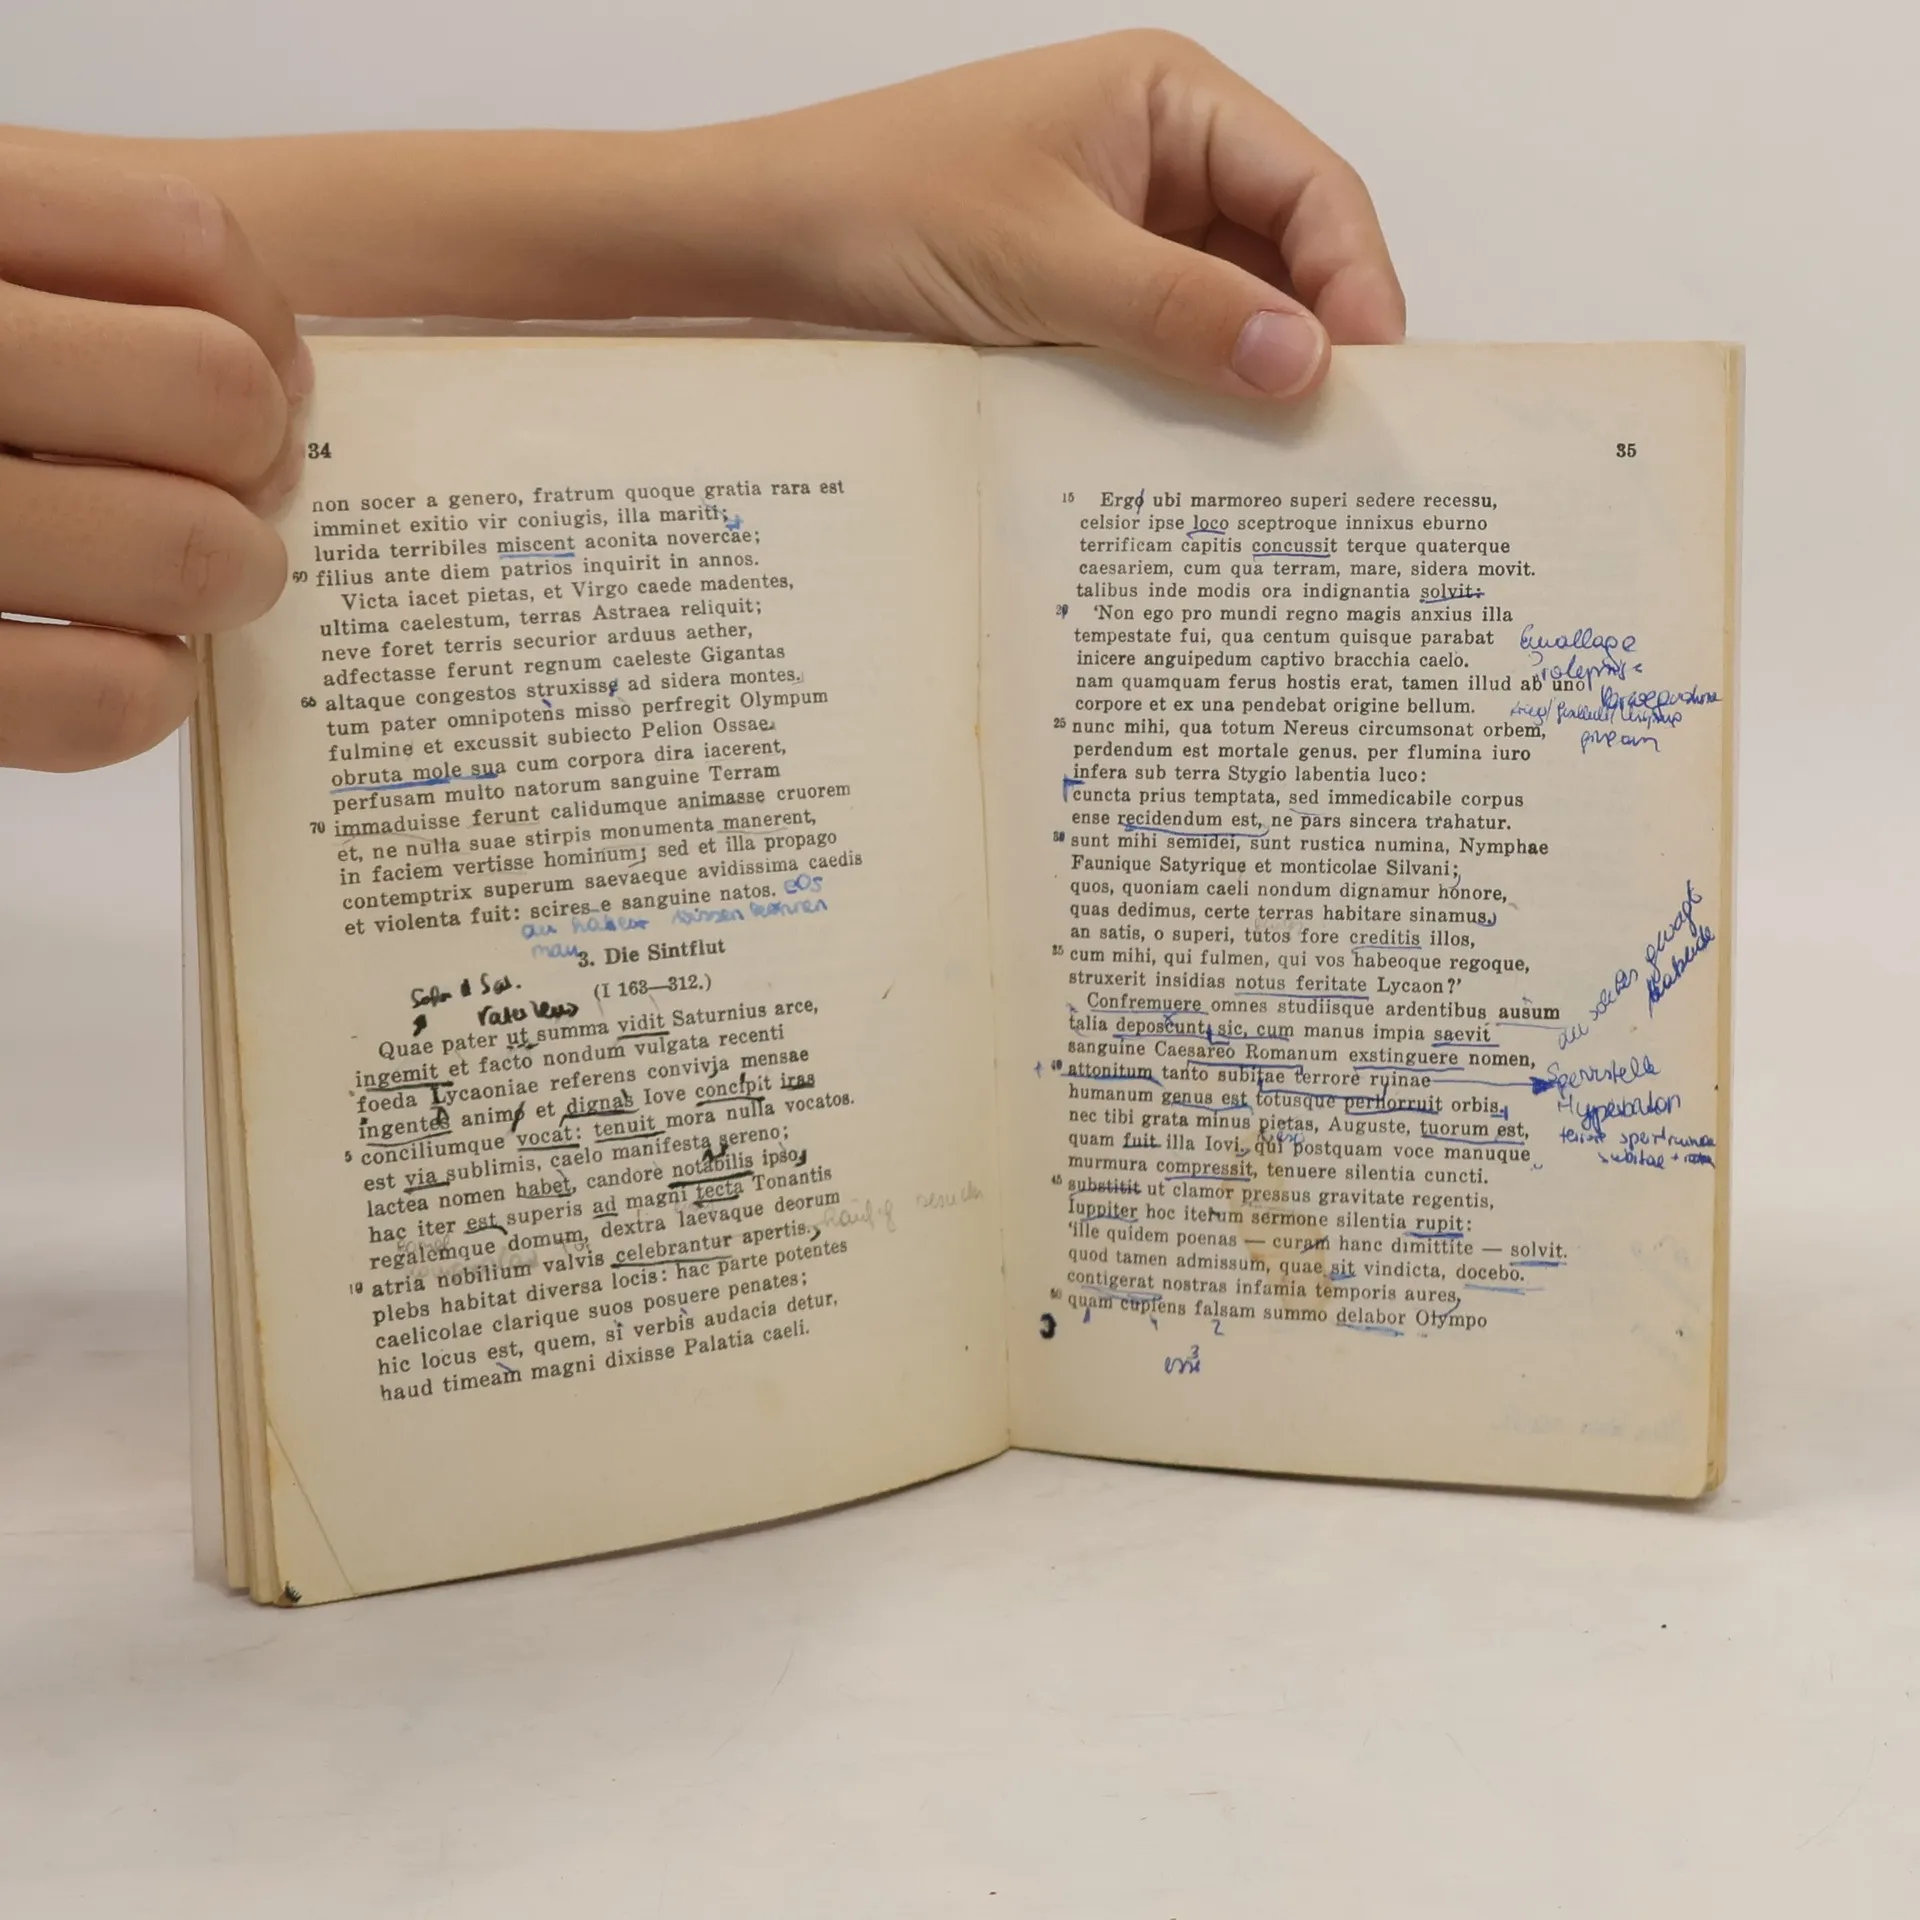 34
non socer a genero, fratrum quoque gratia rara est
imminet exitio vir coniugis, illa mariti;
lurida terribiles miscent aconita novercae;
60 filius ante diem patrios inquirit in annos.
Victa iacet pietas, et Virgo caede madentes,
ultima caelestum, terras Astraea reliquit;
neve foret terris securior arduus aether,
adfectasse ferunt regnum caeleste Gigantas
65 altaque congestos struxisse ad sidera montes.
tum pater omnipotens misso perfregit Olympum
fulmine et excussit subiecto Pelion Ossae.
obruta mole sua cum corpora dira iacerent,
perfusam multo natorum sanguine Terram
70 immaduisse ferunt calidumque animasse cruorem
et, ne nulla suae stirpis monumenta manerent,
in faciem vertisse hominum; sed et illa propago
contemptrix superum saevaeque avidissima caedis
et violenta fuit: scires e sanguine natos. eos
wissen können
man
3. Die Sintflut
(I 163—312.)
Quae pater ut summa vidit Saturnius arce,
ingemit et facto nondum vulgata recenti
foeda Lycaoniae referens convivia mensae
ingentes animo et dignas Iove concipit iras
5 conciliumque vocat: tenuit mora nulla vocatos.
est via sublimis, caelo manifesta sereno;
lactea nomen habet, candore notabilis ipso,
hac iter est superis ad magni tecta Tonantis
regalemque domum, dextra laevaque deorum
10 atria nobilium valvis celebrantur apertis. häufig
plebs habitat diversa locis: hac parte potentes
caelicolae clarique suos posuere penates;
hic locus est, quem, si verbis audacia detur,
haud timeam magni dixisse Palatia caeli.
35
15 Ergo ubi marmoreo superi sedere recessu,
celsior ipse loco sceptroque innixus eburno
terrificam capitis concussit terque quaterque
caesariem, cum qua terram, mare, sidera movit.
talibus inde modis ora indignantia solvit:
20 'Non ego pro mundi regno magis anxius illa
tempestate fui, qua centum quisque parabat Enallage
inicere anguipedum captivo bracchia caelo.
nam quamquam ferus hostis erat, tamen illud ab uno
corpore et ex una pendebat origine bellum.
25 nunc mihi, qua totum Nereus circumsonat orbem,
perdendum est mortale genus. per flumina iuro
infera sub terra Stygio labentia luco:
cuncta prius temptata, sed immedicabile corpus
ense recidendum est, ne pars sincera trahatur.
30 sunt mihi semidei, sunt rustica numina, Nymphae
Faunique Satyrique et monticolae Silvani;
quos, quoniam caeli nondum dignamur honore,
quas dedimus, certe terras habitare sinamus.
an satis, o superi, tutos fore creditis illos,
35 cum mihi, qui fulmen, qui vos habeoque regoque,
struxerit insidias notus feritate Lycaon?'
Confremuere omnes studiisque ardentibus ausum
talia deposcunt; sic, cum manus impia saevit
sanguine Caesareo Romanum exstinguere nomen,
40 attonitum tanto subitae terrore ruinae Sperrstelle
humanum genus est totusque perhorruit orbis. Hyperbaton
nec tibi grata minus pietas, Auguste, tuorum est,
quam fuit illa Iovi. qui postquam voce manuque
murmura compressit, tenuere silentia cuncti.
45 substitit ut clamor pressus gravitate regentis,
Iuppiter hoc iterum sermone silentia rupit:
'ille quidem poenas — curam hanc dimittite — solvit.
quod tamen admissum, quae sit vindicta, docebo.
contigerat nostras infamia temporis aures,
50 quam cupiens falsam summo delabor Olympo
1 2
3